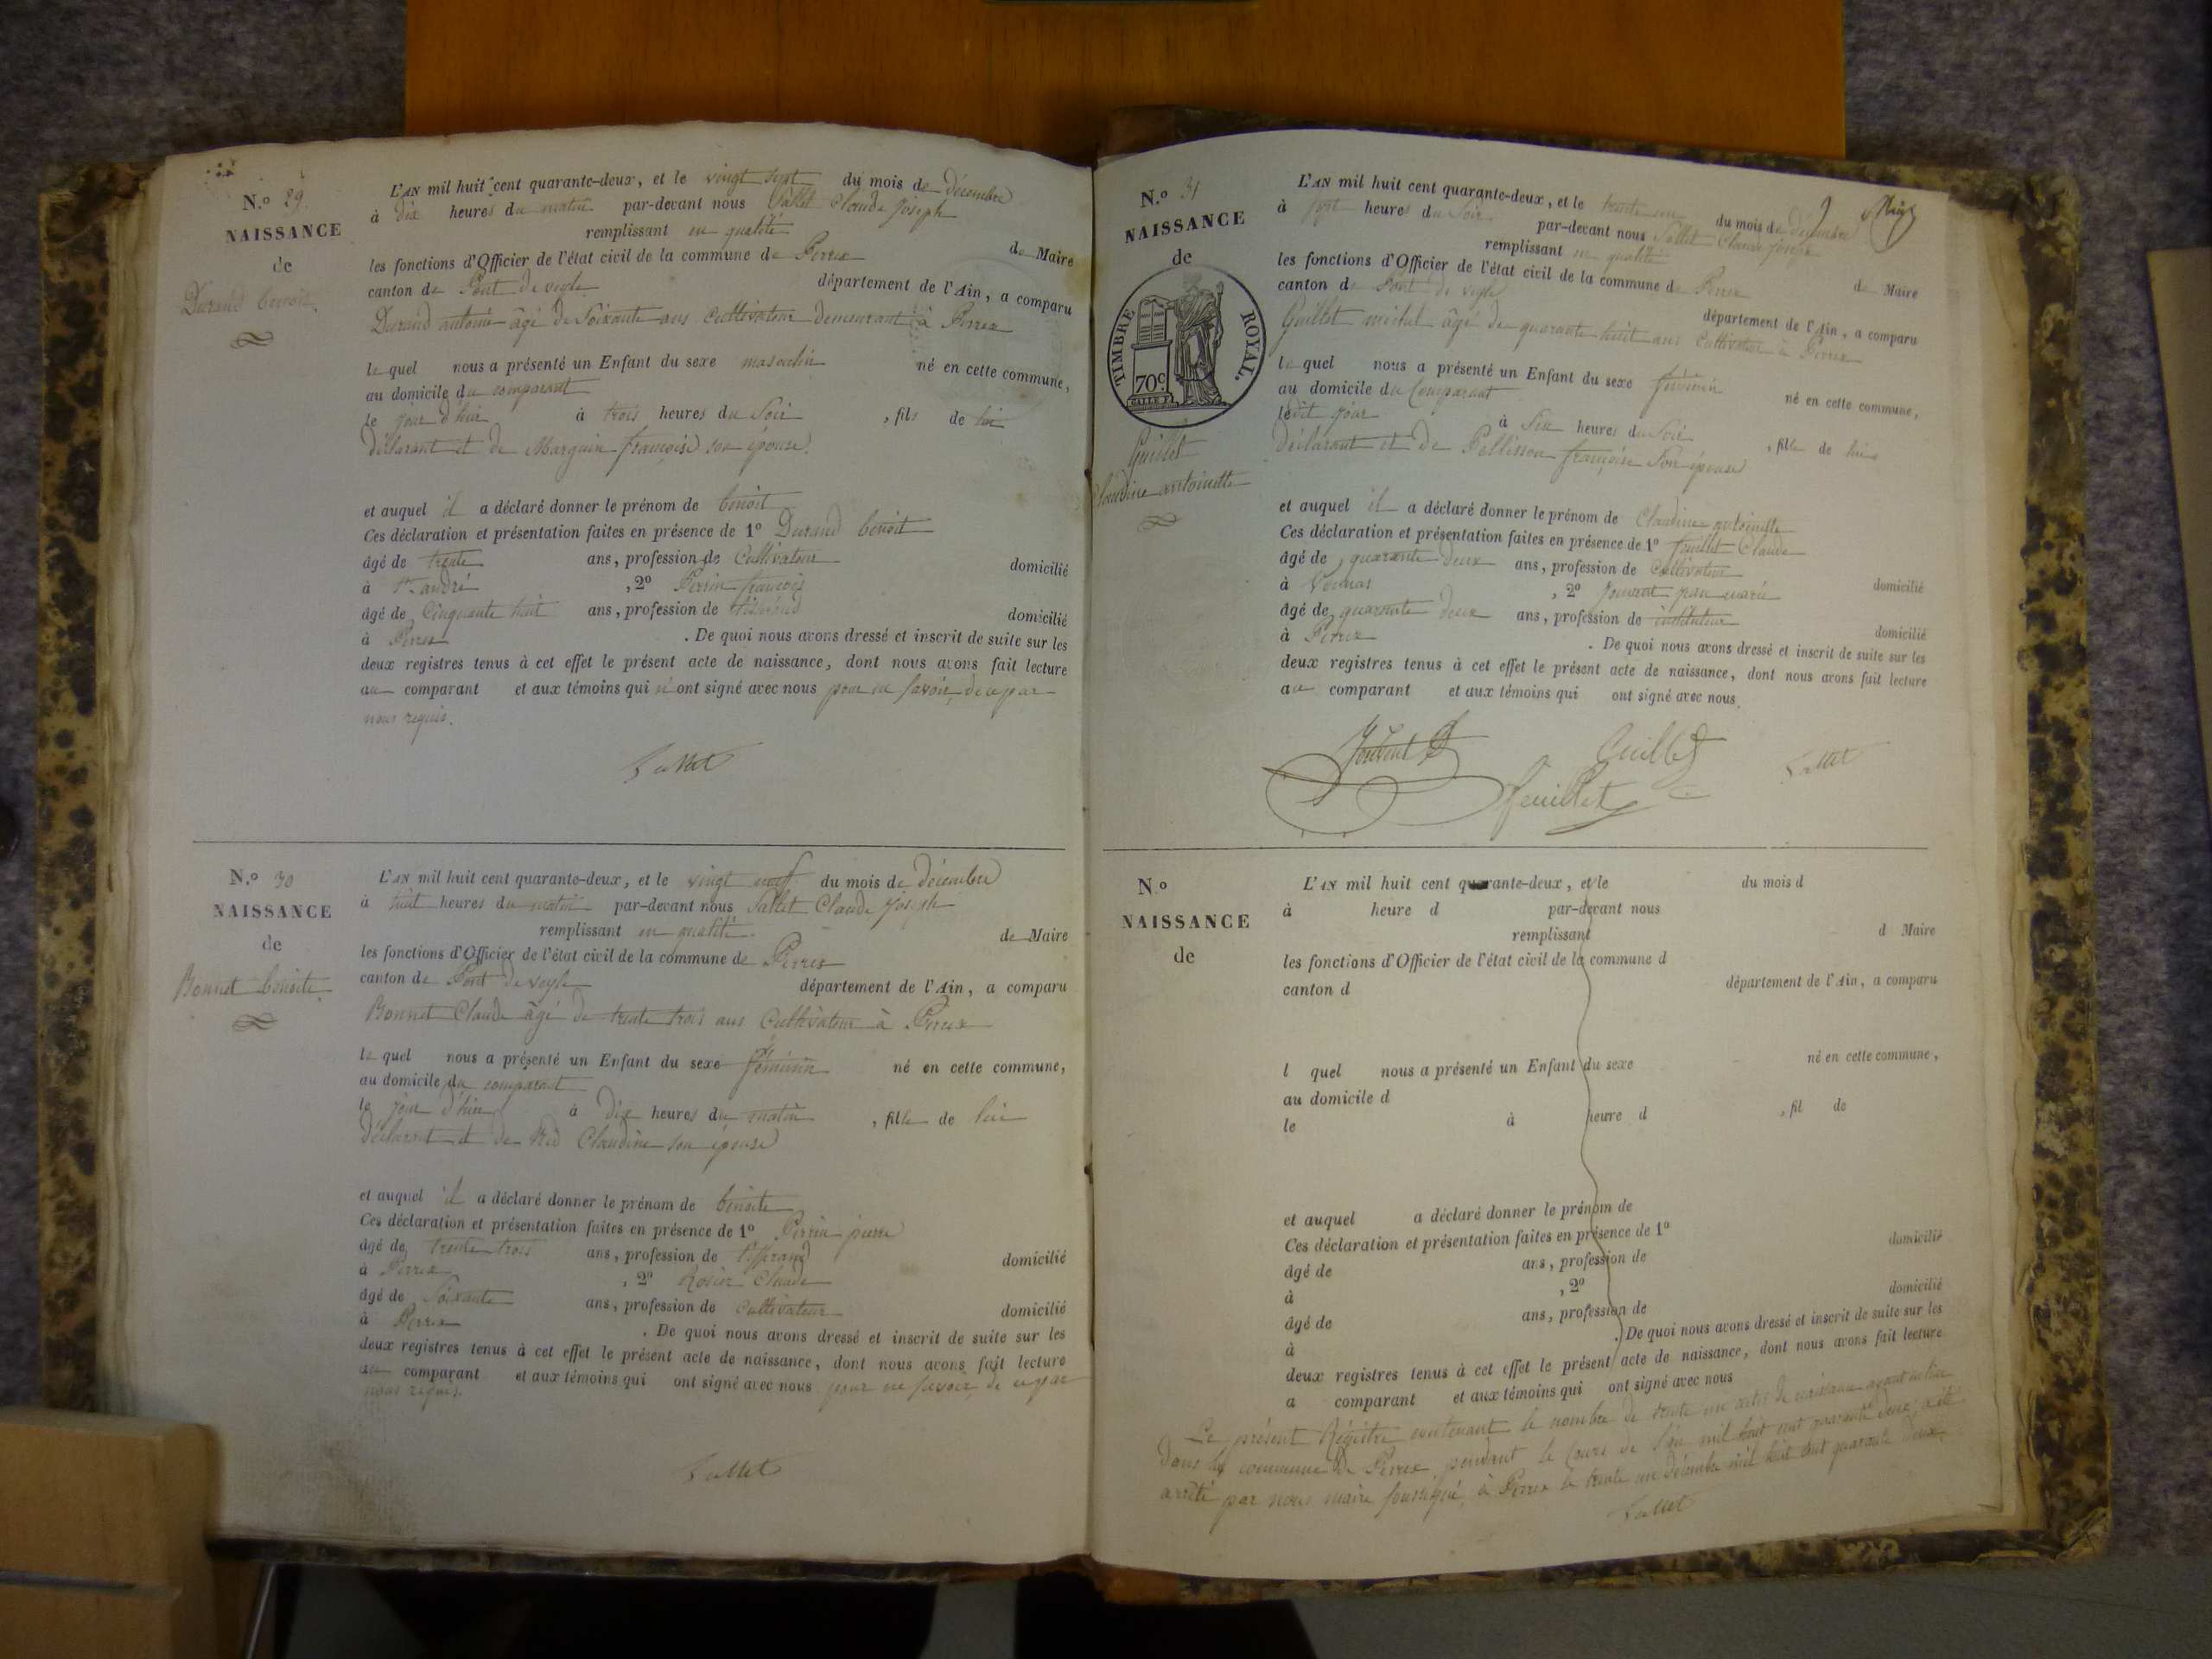 N.º 29
NAISSANCE
de
Durand benoit.
L'AN mil huit cent quarante-deux, et le vingt sept du mois de décembre
à dix heures du matin par-devant nous Sallet Claude joseph
remplissant en qualité de Maire
les fonctions d'Officier de l'état civil de la commune de Perrex
canton de Pont de veyle département de l'Ain, a comparu
Durand antoine âgé de Soixante ans cultivateur demeurant à Perrex
le quel nous a présenté un Enfant du sexe masculin né en cette commune,
au domicile du comparant
le jour d'hier à trois heures du Soir , fils de lui
déclarant et de Marguin françoise son épouse.
et auquel il a déclaré donner le prénom de benoit
Ces déclaration et présentation faites en présence de 1º Durand benoit
âgé de trente ans, profession de Cultivateur domicilié
à St andré , 2º Perrin françois
âgé de Cinquante huit ans, profession de tisserand domicilié
à Perrex . De quoi nous avons dressé et inscrit de suite sur les
deux registres tenus à cet effet le présent acte de naissance, dont nous avons fait lecture
au comparant et aux témoins qui n'ont signé avec nous pour ne savoir, de ce par
nous requis.
Sallet
N.º 30
NAISSANCE
de
Bonnet benoite.
L'AN mil huit cent quarante-deux, et le vingt neuf du mois de décembre
à huit heures du matin par-devant nous Sallet Claude joseph
remplissant en qualité de Maire
les fonctions d'Officier de l'état civil de la commune de Perrex
canton de Pont de veyle département de l'Ain, a comparu
Bonnet Claude âgé de trente trois ans Cultivateur à Perrex
le quel nous a présenté un Enfant du sexe féminin né en cette commune,
au domicile du comparant
le jour d'hier à dix heures du matin , fille de lui
déclarant et de Claudine son épouse
et auquel il a déclaré donner le prénom de benoite
Ces déclaration et présentation faites en présence de 1º Perrin pierre
âgé de trente trois ans, profession de tisserand domicilié
à Perrex , 2º Rolier Claude
âgé de Soixante ans, profession de Cultivateur domicilié
à Perrex . De quoi nous avons dressé et inscrit de suite sur les
deux registres tenus à cet effet le présent acte de naissance, dont nous avons fait lecture
au comparant et aux témoins qui ont signé avec nous pour ne savoir, de ce par
nous requis.
Sallet
N.º 31
NAISSANCE
de
TIMBRE ROYAL.
70c
Guillet
Claudine antoinette
L'AN mil huit cent quarante-deux, et le trente un du mois de décembre
à sept heures du Soir par-devant nous Sallet Claude joseph
remplissant en qualité de Maire
les fonctions d'Officier de l'état civil de la commune de Perrex
canton de Pont de veyle département de l'Ain, a comparu
Guillet michel âgé de quarante huit ans Cultivateur à Perrex
le quel nous a présenté un Enfant du sexe féminin né en cette commune,
au domicile du Comparant
le dit jour à Six heures du Soir , fille de lui
déclarant et de Pellisson françoise Son épouse
et auquel il a déclaré donner le prénom de Claudine antoinette
Ces déclaration et présentation faites en présence de 1º feuillet Claude
âgé de quarante deux ans, profession de Cultivateur domicilié
à Vonnas , 2º jean marie
âgé de quarante deux ans, profession de instituteur domicilié
à Perrex . De quoi nous avons dressé et inscrit de suite sur les
deux registres tenus à cet effet le présent acte de naissance, dont nous avons fait lecture
au comparant et aux témoins qui ont signé avec nous.
Guillet
feuillet
Sallet
N.º
NAISSANCE
de
L'AN mil huit cent quarante-deux, et le du mois d
à heure d par-devant nous
remplissant d Maire
les fonctions d'Officier de l'état civil de la commune d
canton d département de l'Ain, a comparu
l quel nous a présenté un Enfant du sexe né en cette commune,
au domicile d
le à heure d , fil de
et auquel a déclaré donner le prénom de
Ces déclaration et présentation faites en présence de 1º
âgé de ans, profession de domicilié
à , 2º
âgé de ans, profession de domicilié
à . De quoi nous avons dressé et inscrit de suite sur les
deux registres tenus à cet effet le présent acte de naissance, dont nous avons fait lecture
a comparant et aux témoins qui ont signé avec nous
Le présent Régistre contenant le nombre de trente un actes de naissance ayant eu lieu
dans la commune de Perrex pendant le cours de l'an mil huit cent quarante deux a été
arrêté par nous maire soussigné, à Perrex le trente un décembre mil huit cent quarante deux.
Sallet